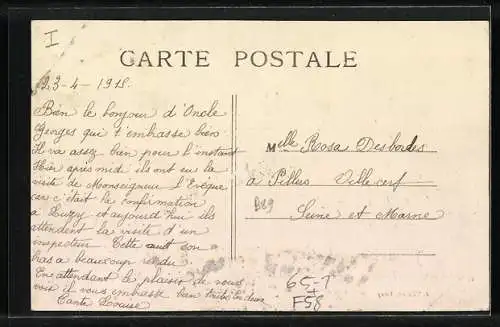 I
CARTE POSTALE
23-4-1915.
Bien le bonjour d'Oncle
Georges qui t'embrasse bien
Il va assez bien pour l'instant
Hier après-med. ils ont eu la
visite de Monseigneur l'Evêque
car c'était la confirmation
a et aujourd'hui ils
attendent la visite d'un
inspecteur. Cette son
bas a beaucoup rendu.
En attendant le plaisir de vous
voir il vous embrasse bien
Tante Louise
Melle Rosa Desbordes
à Villecerf
Seine et Marne
65-1
F58